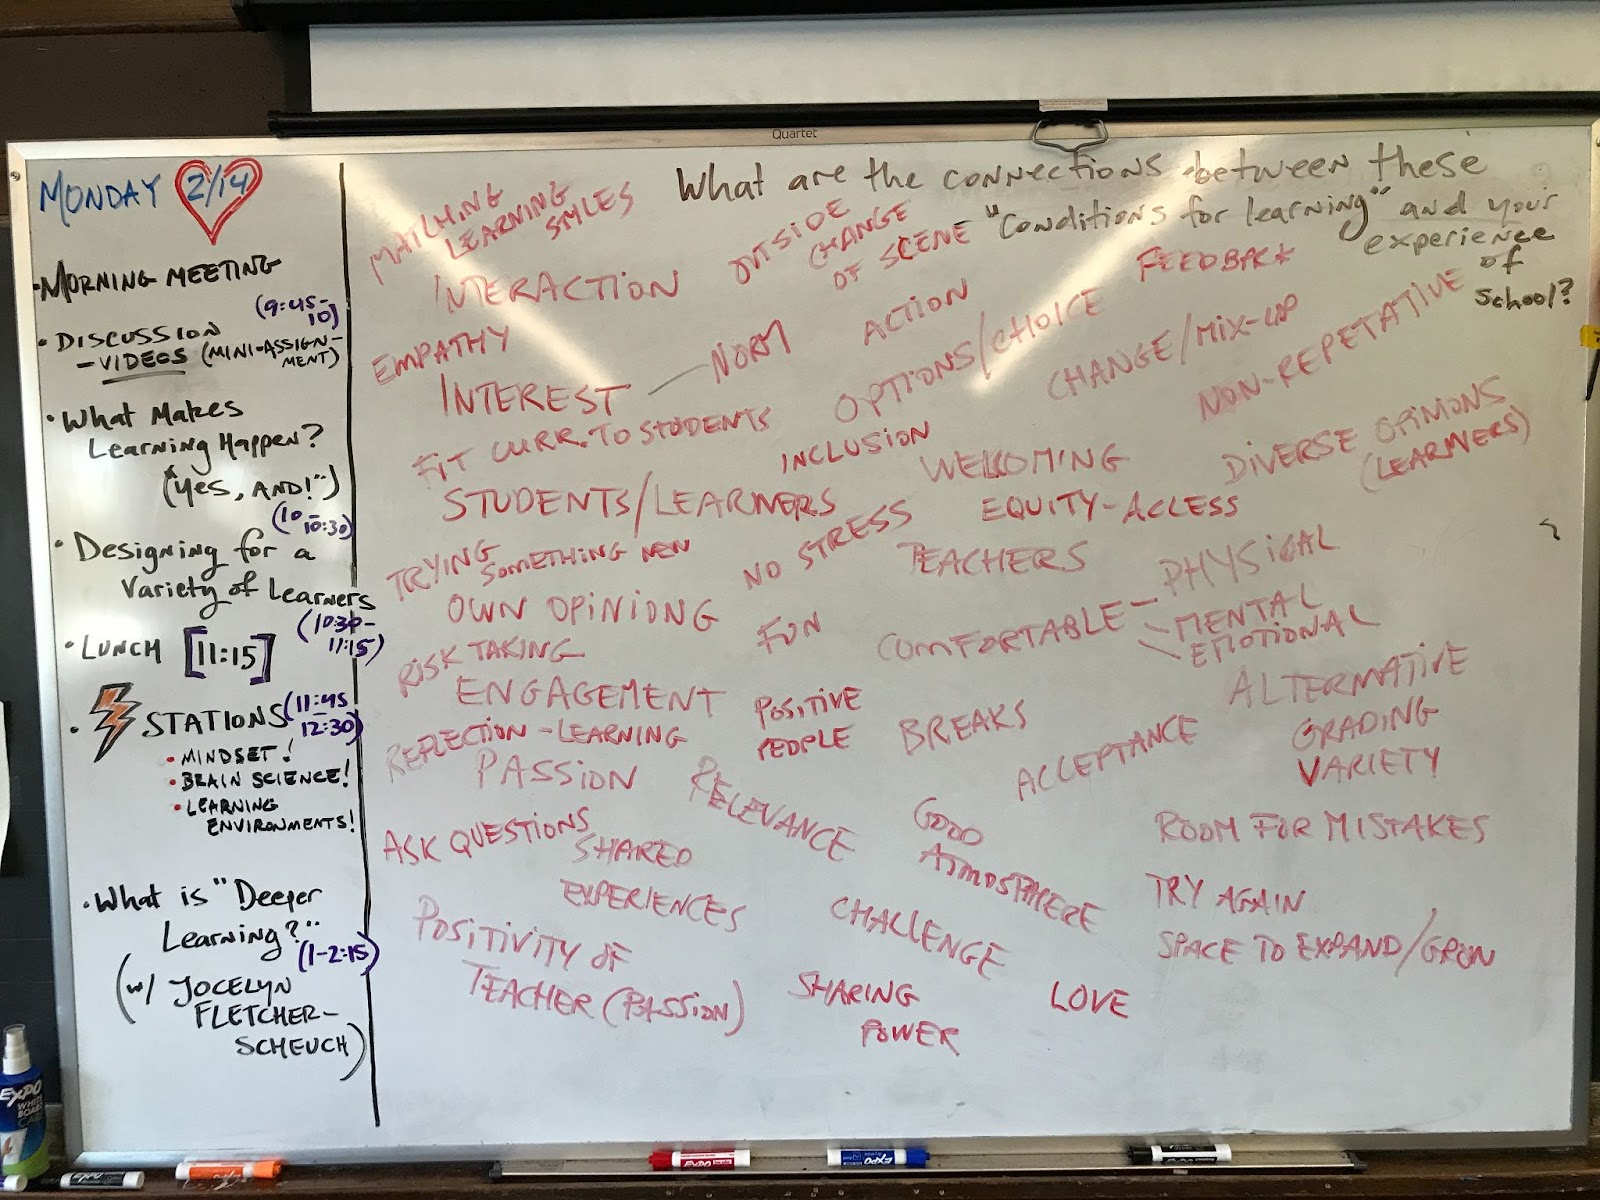 Quartet
MONDAY 2/14
• MORNING MEETING
(9:45-
10)
• DISCUSSION
- VIDEOS (MINI-ASSIGN-
MENT)
• What Makes
Learning Happen?
("Yes, AND!")
(10-
10:30)
• Designing for a
Variety of Learners
(10:30-
11:15)
• LUNCH [11:15]
• STATIONS (11:45
12:30)
• MINDSET!
• BRAIN SCIENCE!
• LEARNING
ENVIRONMENTS!
• What is "Deeper
Learning?"
(1-2:15)
(w/ JOCELYN
FLETCHER-
SCHEUCH)
What are the connections between these
"Conditions for learning" and your
experience
of
School?
MATCHING
LEARNING
STYLES
OUTSIDE
CHANGE
OF SCENE
INTERACTION
FEEDBACK
EMPATHY
NORM
ACTION
INTEREST
OPTIONS/CHOICE
CHANGE/MIX-UP
NON-REPETATIVE
FIT CURR. TO STUDENTS
INCLUSION
WELCOMING
DIVERSE OPINIONS
(LEARNERS)
STUDENTS/LEARNERS
EQUITY-ACCESS
TRYING
SOMETHING NEW
NO STRESS
TEACHERS
OWN OPINIONG
FUN
COMFORTABLE
- PHYSICAL
- MENTAL
- EMOTIONAL
RISK TAKING
ENGAGEMENT
POSITIVE
PEOPLE
BREAKS
ALTERNATIVE
GRADING
VARIETY
REFLECTION - LEARNING
PASSION
RELEVANCE
ACCEPTANCE
ASK QUESTIONS
SHARED
EXPERIENCES
GOOD
ATMOSPHERE
ROOM FOR MISTAKES
TRY AGAIN
SPACE TO EXPAND/GROW
POSITIVITY OF
TEACHER (PASSION)
CHALLENGE
SHARING
POWER
LOVE
EXPO
WHITE
BOARD
CARE
EXPO
EXPO
EXPO
EXPO